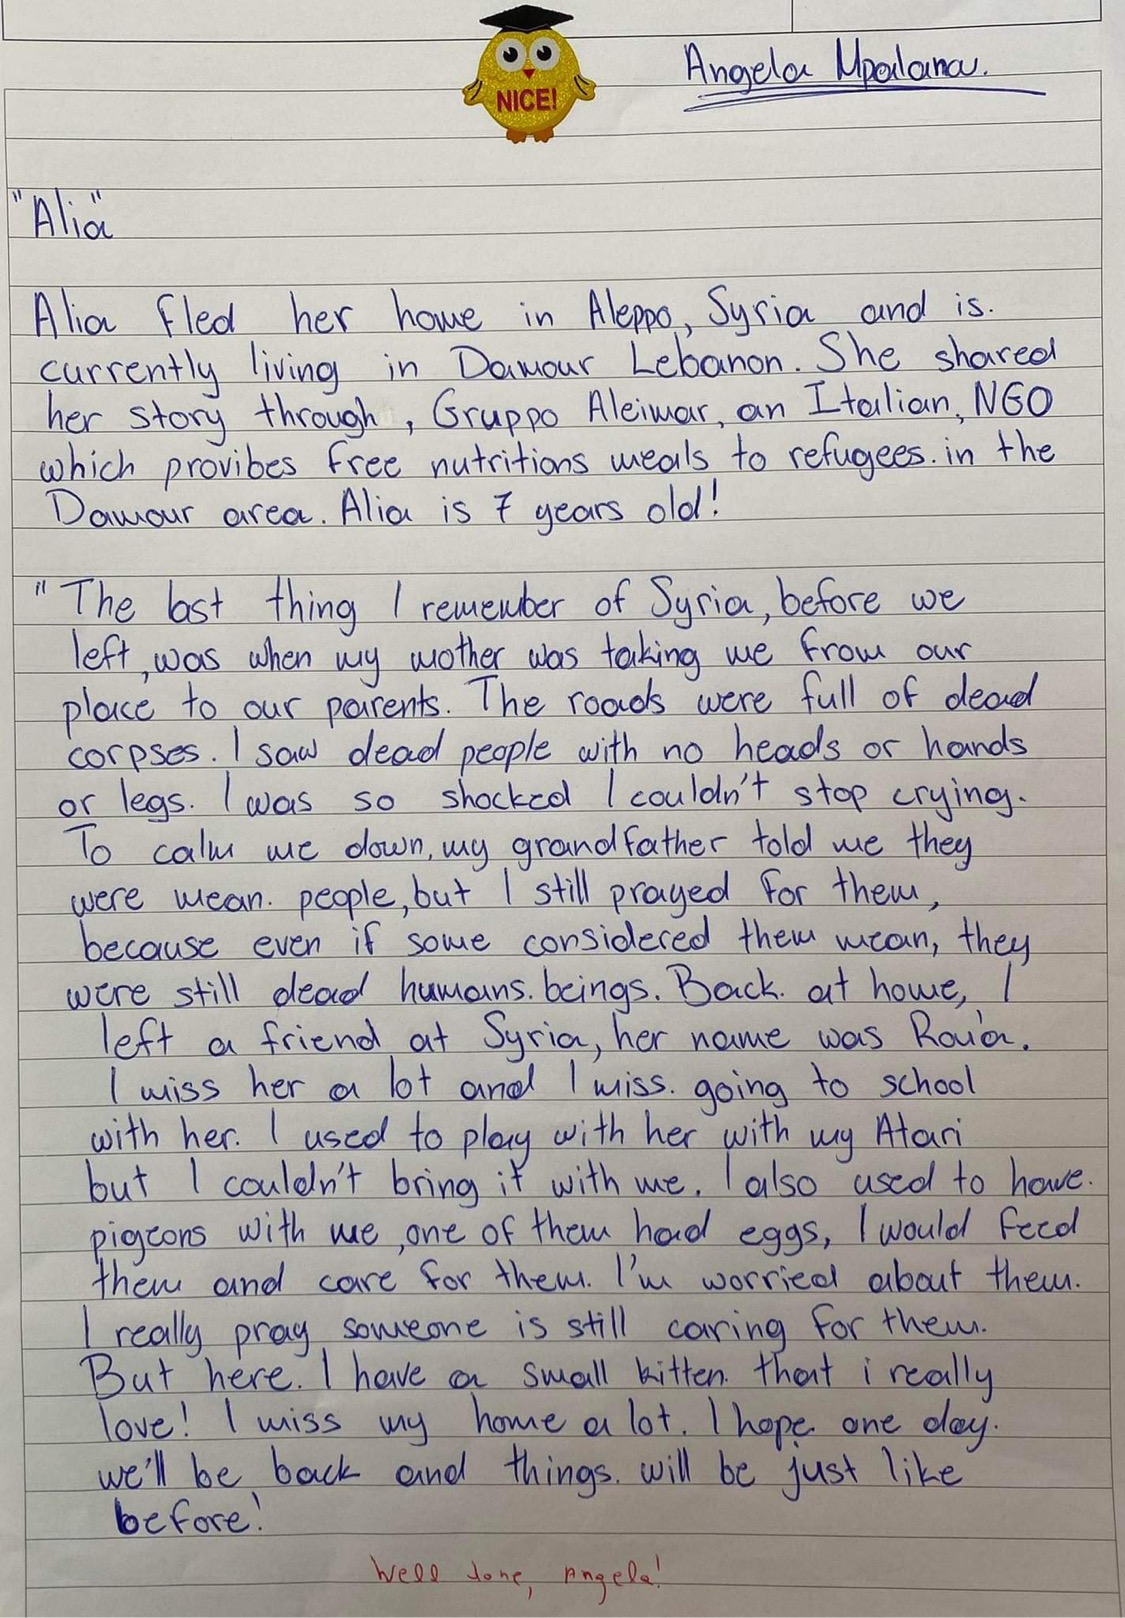 NICE!
Angela Mpalana.
"Alia"
Alia fled her home in Aleppo, Syria and is.
currently living in Damour Lebanon. She shared
her story through, Gruppo Aleimar, an Italian, NGO
which provibes free nutritions meals to refugees. in the
Damour area. Alia is 7 years old!
"The last thing I remember of Syria, before we
left, was when my mother was taking me from our
place to our parents. The roads were full of dead
corpses. I saw dead people with no heads or hands
or legs. I was so shocked I couldn't stop crying.
To calm me down, my grandfather told me they
were mean. people, but I still prayed for them,
because even if some considered them mean, they
were still dead humans. beings. Back. at home, I
left a friend at Syria, her name was Rou'a.
I miss her a lot and I miss. going to school
with her. I used to play with her with my Atari
but I couldn't bring it with me. I also used to have.
pigeons with me, one of them had eggs, I would feed
them and care for them. I'm worried about them.
I really pray someone is still caring for them.
But here. I have a small kitten. that i really
love! I miss my home a lot. I hope. one day.
we'll be back and things. will be just like
before!
Well done, Angela!